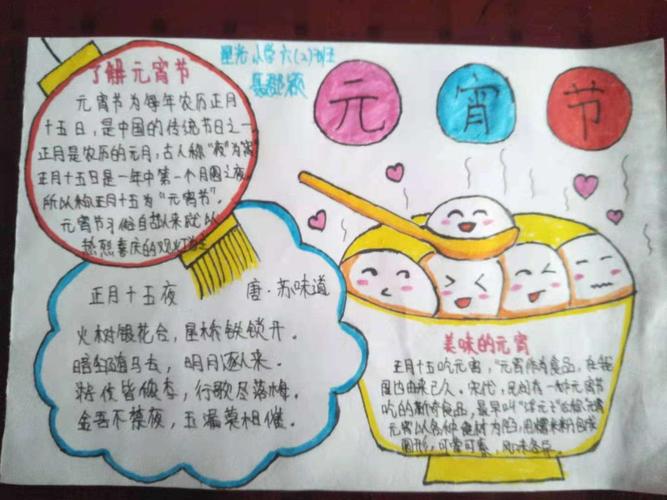 星光小学六(2)班
元宵节
了解元宵节
元宵节为每年农历正月
十五日,是中国的传统节日之一
正月是农历的元月,古人称"夜"为宵
正月十五日是一年中第一个月圆之夜
所以称正月十五为"元宵节".
元宵节习俗自古以来就以
热烈喜庆的观灯
正月十五夜 唐·苏味道
火树银花合,星桥铁锁开.
暗尘随马去,明月逐人来.
行歌尽落梅.
金吾不禁夜,玉漏莫相催.
美味的元宵
正月十五吃元宵,"元宵作为食品,在我
国也由来已久.宋代,民间有一种元宵节
吃的新奇食品,最早叫"浮元子"后称元宵
元宵以各种食材为馅,用糯米粉包成
圆形,可荤可素,风味各异.